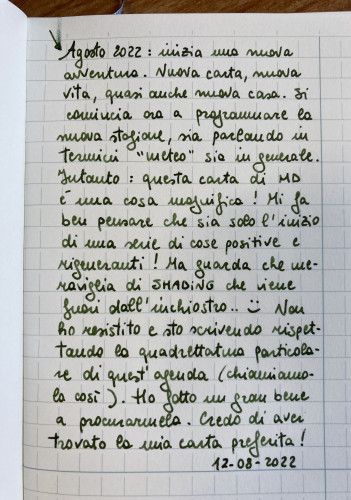 Agosto 2022 : inizia una nuova
avventura. Nuova carta, nuova
vita, quasi anche nuova casa. Si
comincia ora a programmare la
nuova stagione, sia parlando in
termini "meteo" sia in generale.
Intanto : questa carta di MD
è una cosa magnifica ! Mi fa
ben pensare che sia solo l'inizio
di una serie di cose positive e
rigeneranti ! Ma guarda che me-
raviglia di SHADING che viene
fuori dall'inchiostro.. :) Non
ho resistito e sto scrivendo rispet-
tando la quadrettatura particola-
re di quest'agenda (chiamiamo-
la così ). Ho fatto un gran bene
a procurarmela. Credo di aver
trovato la mia carta preferita !
12-08-2022